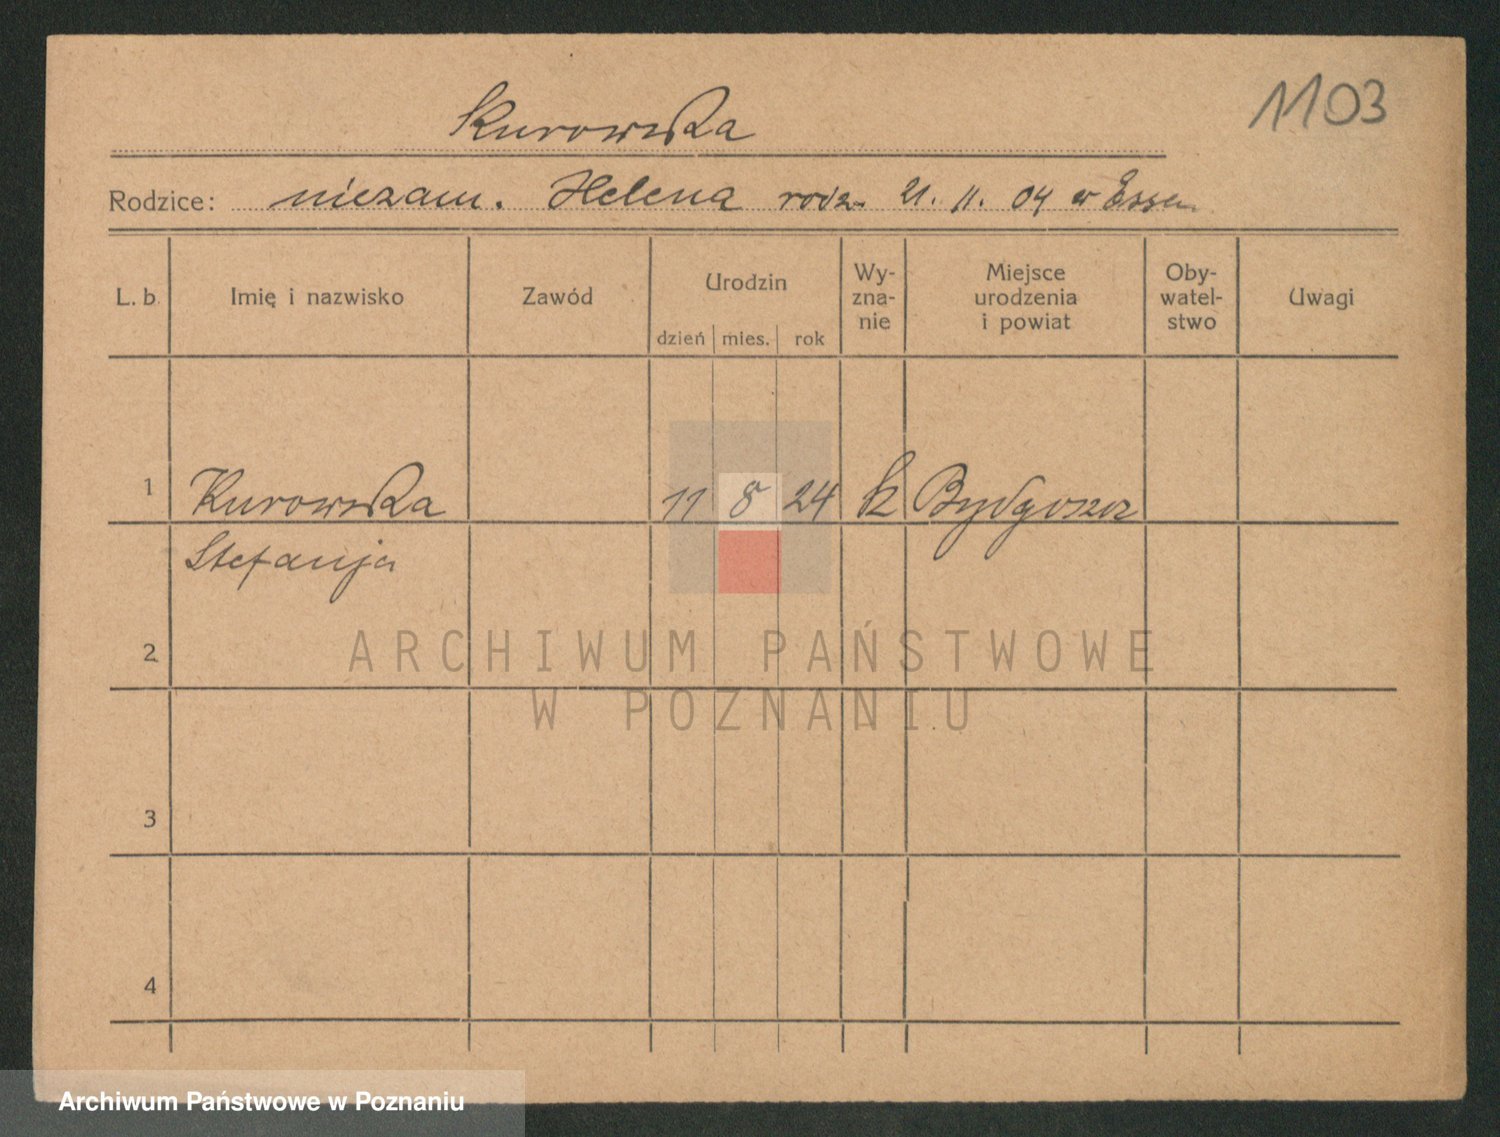 1103
Kurowska
Rodzice: niezam. Helena rodz. 21. 11. 04 w Essen
L. b. Imię i nazwisko Zawód Urodzin dzień mies. rok Wy-zna-nie Miejsce urodzenia i powiat Oby-watel-stwo Uwagi
1 Kurowska 11 8 24 k Bydgoszcz
Stefanja
2
3
4
ARCHIWUM PAŃSTWOWE
W POZNANIU
Archiwum Państwowe w Poznaniu